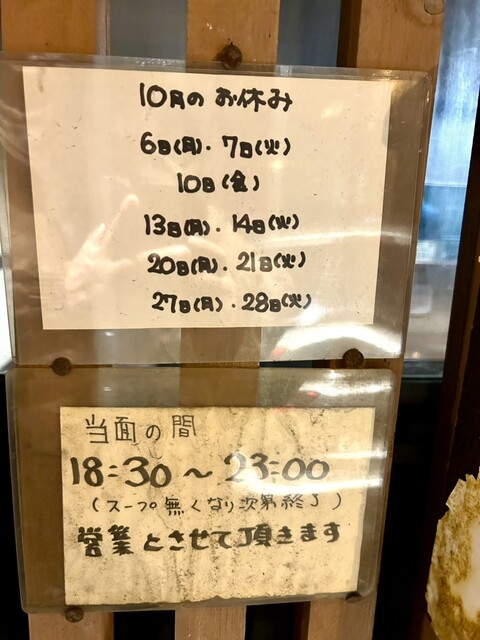 10月の お休み
6日(月)・7日(火)
10日(金)
13日(月)・14日(火)
20日(月)・21日(火)
27日(月)・28日(火)
当面の間
18:30〜23:00
(スープ無くなり次第終了)
営業とさせて頂きます